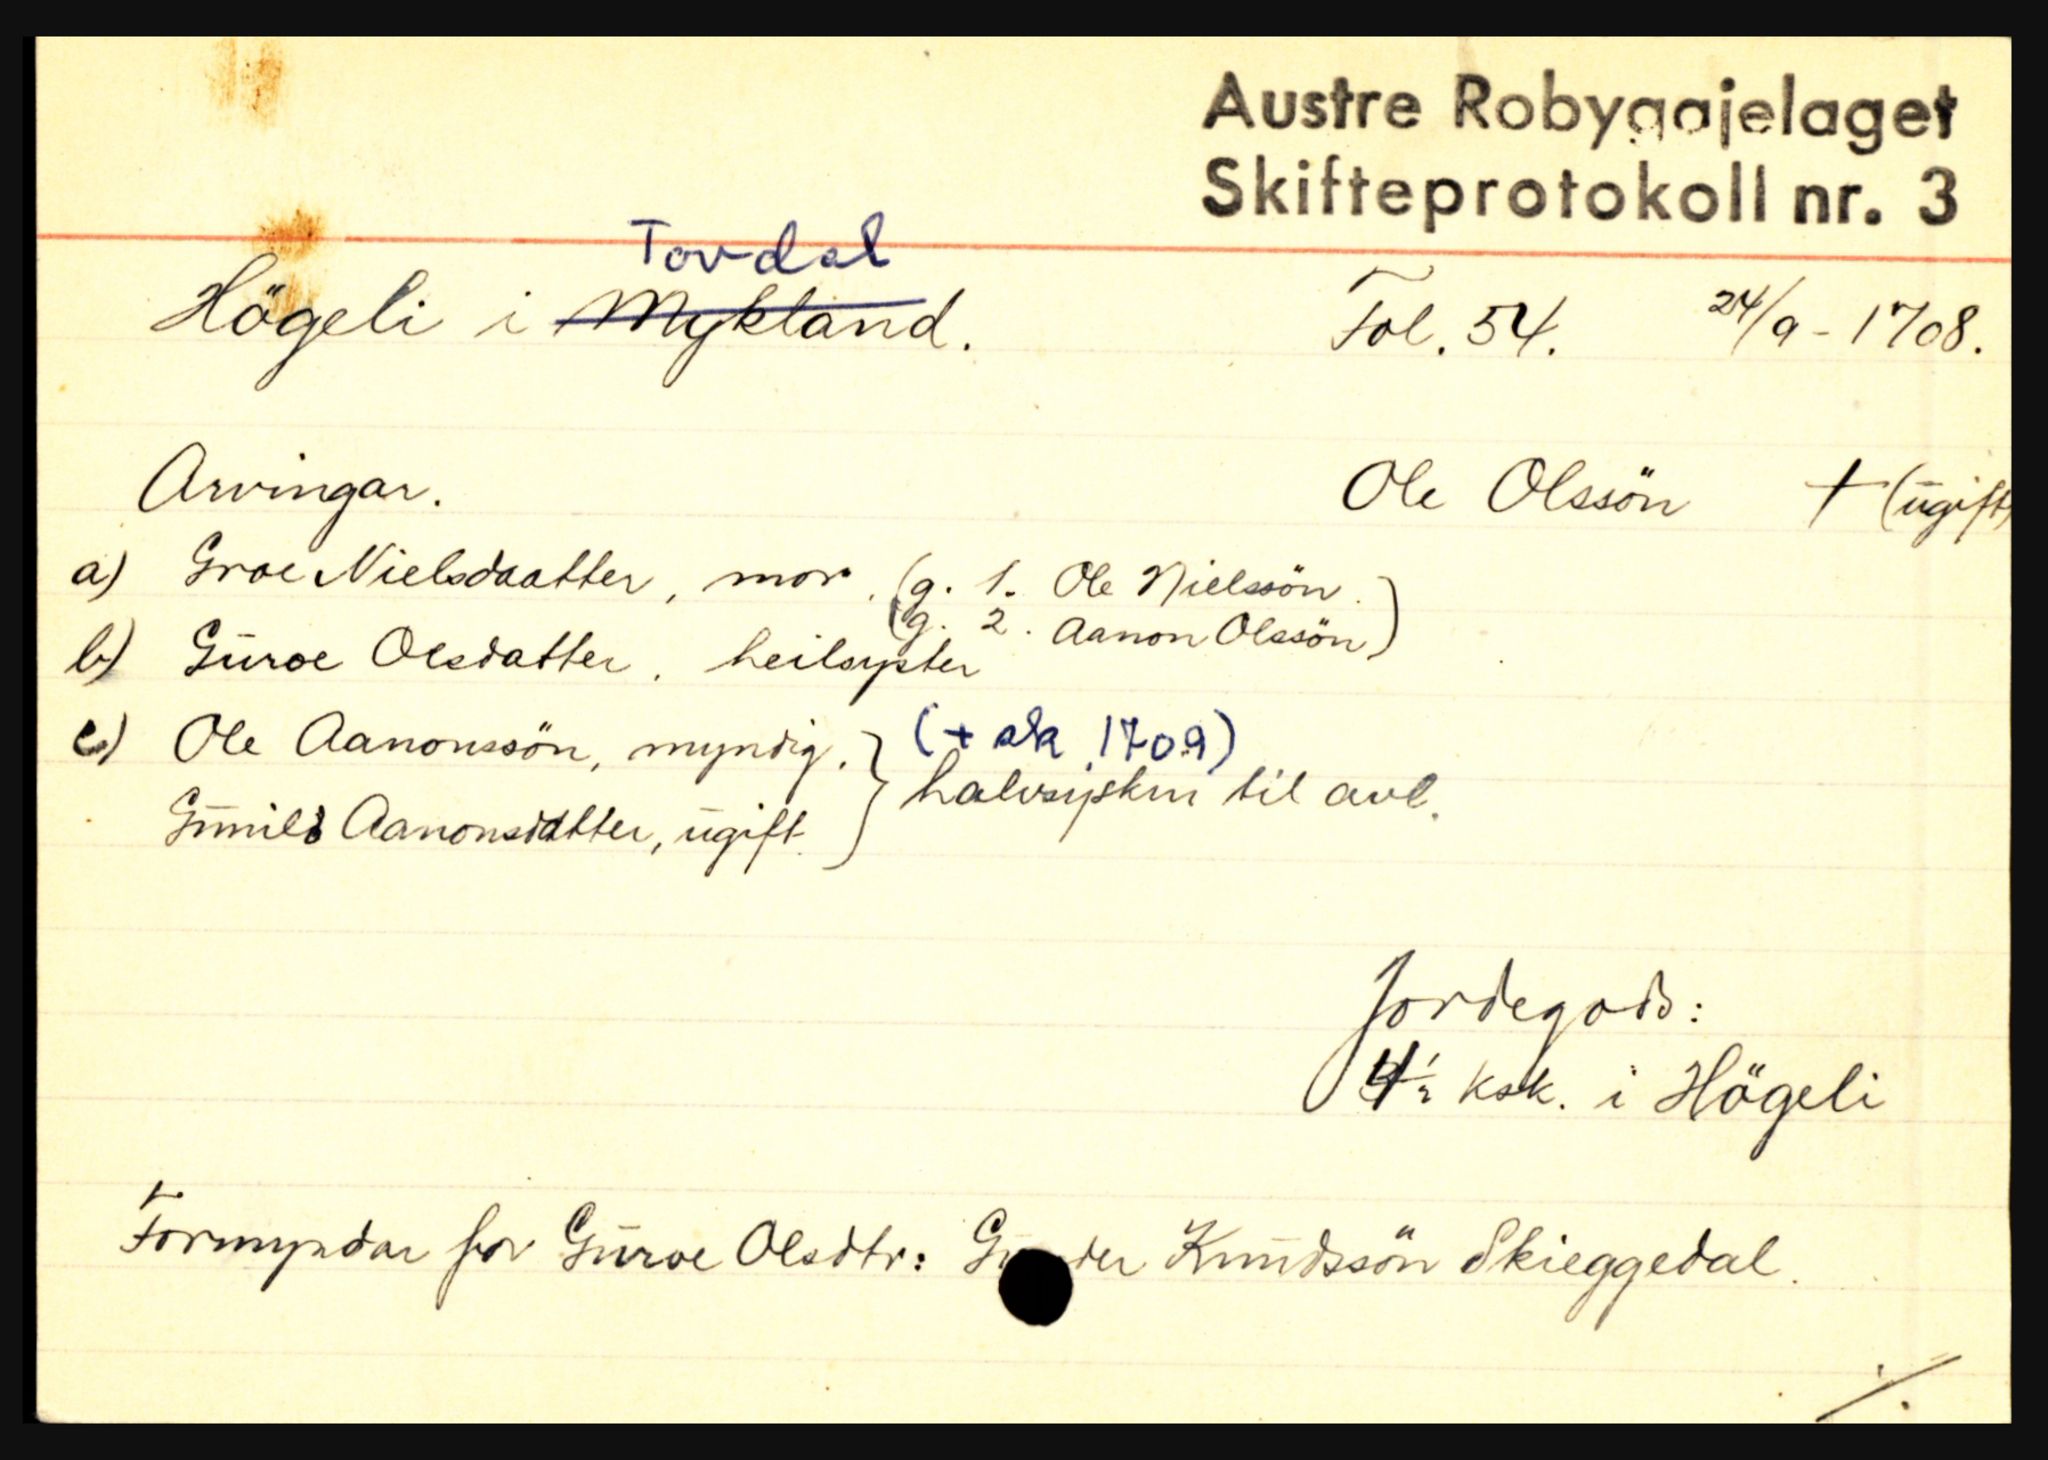 Austre Robyggjelaget
Skifteprotokoll nr. 3
Tovdal
Högeli i Mykland. Fol. 54. 24/9 - 1708.
Arvingar. Ole Olssön + (ugift)
a) Groe Nielsdaatter, mor. (g. 1. Ole Nielssön.)
(g. 2. Aanon Olssön)
b) Guroe Olsdatter. heilsyster
c) Ole Aanonssön, myndig. } (+ sk 1709)
halvsysken til avl.
Gunild Aanonsdatter, ugift.
Jordegods:
4 1/2 ksk. i Högeli
Formyndar for Guroe Olsdtr: Gunder Knudssön Skieggedal.